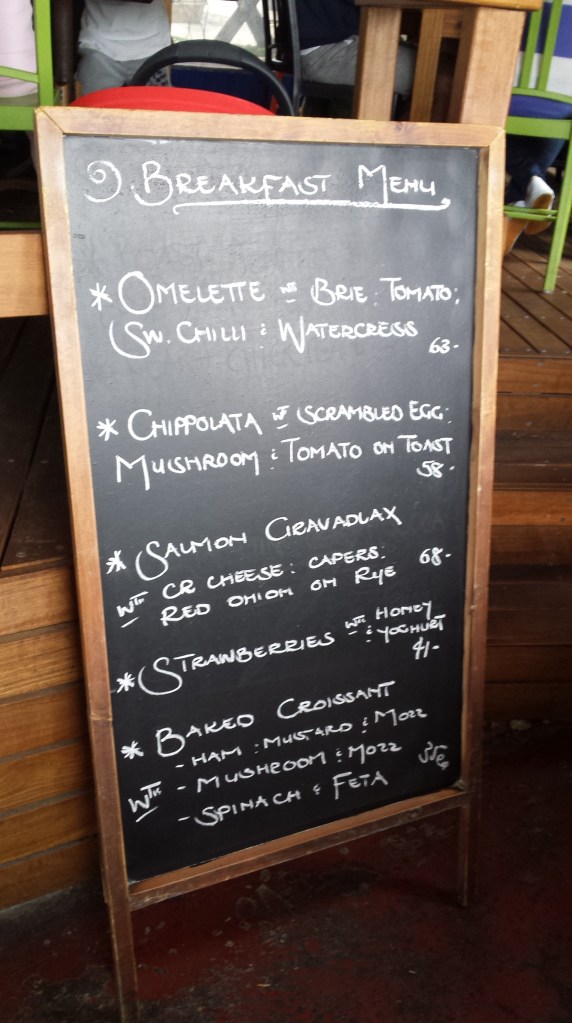 BREAKFAST MENU
* OMELETTE WTH BRIE: TOMATO:
SW. CHILLI : WATERCRESS
63-
* CHIPPOLATA WT SCRAMBLED EGG:
MUSHROOM : TOMATO ON TOAST
58-
* SALMON GRAVADLAX
WTH CR CHEESE: CAPERS: 68-
RED ONION ON RYE
* STRAWBERRIES WTH HONEY
: YOGHURT
41-
* BAKED CROISSANT
- HAM : MUSTARD : MOZZ
WTH - MUSHROOM : MOZZ
- SPINACH & FETA